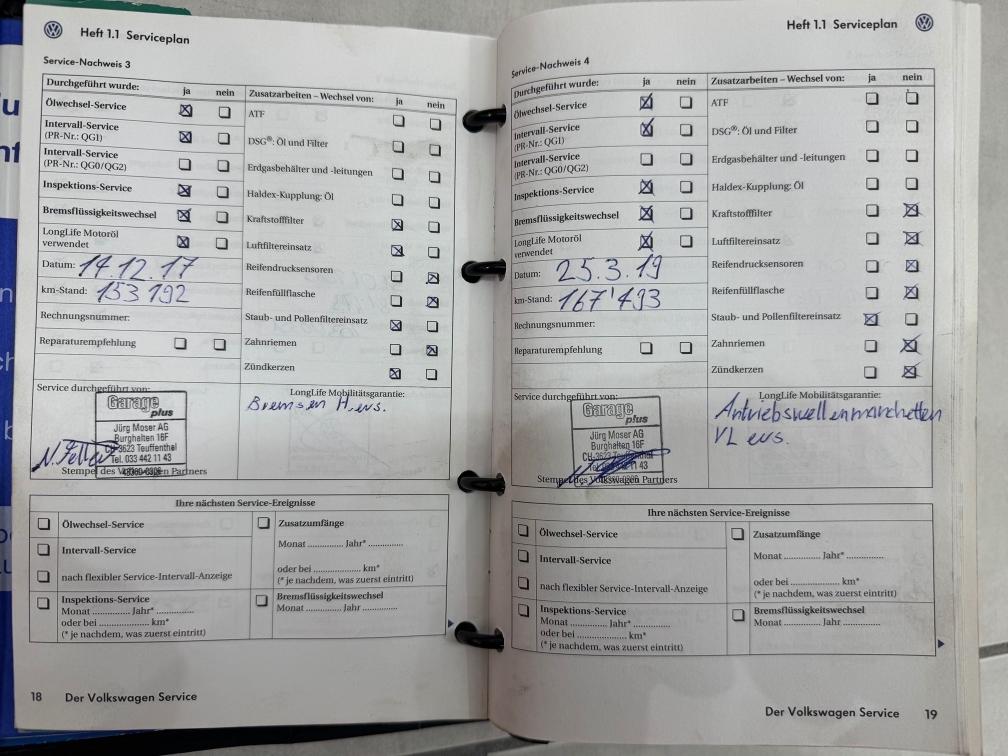 Heft 1.1 Serviceplan
Service-Nachweis 3
Durchgeführt wurde: ja nein Zusatzarbeiten – Wechsel von: ja nein
Ölwechsel-Service
ATF
Intervall-Service
(PR-Nr.: QG1)
DSG®: Öl und Filter
Intervall-Service
(PR-Nr.: QG0/QG2)
Erdgasbehälter und -leitungen
Inspektions-Service
Haldex-Kupplung: Öl
Bremsflüssigkeitswechsel
Kraftstofffilter
LongLife Motoröl
verwendet
Luftfiltereinsatz
Datum: 14.12.17
Reifendrucksensoren
km-Stand: 153 192
Reifenfüllflasche
Rechnungsnummer:
Staub- und Pollenfiltereinsatz
Reparaturempfehlung
Zahnriemen
Zündkerzen
Service durchgeführt von:
LongLife Mobilitätsgarantie:
Bremsen H. ers.
Garage
plus
Jürg Moser AG
Burghalten 16F
CH-3623 Teuffenthal
Tel. 033 442 11 43
Stempel des Volkswagen Partners
Ihre nächsten Service-Ereignisse
Ölwechsel-Service
Zusatzumfänge
Monat ............. Jahr* .............
Intervall-Service
oder bei .................... km*
(* je nachdem, was zuerst eintritt)
nach flexibler Service-Intervall-Anzeige
Inspektions-Service
Monat ............. Jahr* .............
oder bei .................... km*
(* je nachdem, was zuerst eintritt)
Bremsflüssigkeitswechsel
Monat ............. Jahr .............
18 Der Volkswagen Service
Heft 1.1 Serviceplan
Service-Nachweis 4
Durchgeführt wurde: ja nein Zusatzarbeiten – Wechsel von: ja nein
Ölwechsel-Service
ATF
Intervall-Service
(PR-Nr.: QG1)
DSG®: Öl und Filter
Intervall-Service
(PR-Nr.: QG0/QG2)
Erdgasbehälter und -leitungen
Inspektions-Service
Haldex-Kupplung: Öl
Bremsflüssigkeitswechsel
Kraftstofffilter
LongLife Motoröl
verwendet
Luftfiltereinsatz
Datum: 25.3.19
Reifendrucksensoren
km-Stand: 167'493
Reifenfüllflasche
Rechnungsnummer:
Staub- und Pollenfiltereinsatz
Reparaturempfehlung
Zahnriemen
Zündkerzen
Service durchgeführt von:
LongLife Mobilitätsgarantie:
Antriebswellenmanchetten
VL ers.
Garage
plus
Jürg Moser AG
Burghalten 16F
CH-3623 Teuffenthal
Tel. 033 442 11 43
Stempel des Volkswagen Partners
Ihre nächsten Service-Ereignisse
Ölwechsel-Service
Zusatzumfänge
Monat ............. Jahr* .............
Intervall-Service
oder bei .................... km*
(* je nachdem, was zuerst eintritt)
nach flexibler Service-Intervall-Anzeige
Inspektions-Service
Monat ............. Jahr* .............
oder bei .................... km*
(* je nachdem, was zuerst eintritt)
Bremsflüssigkeitswechsel
Monat ............. Jahr .............
Der Volkswagen Service 19